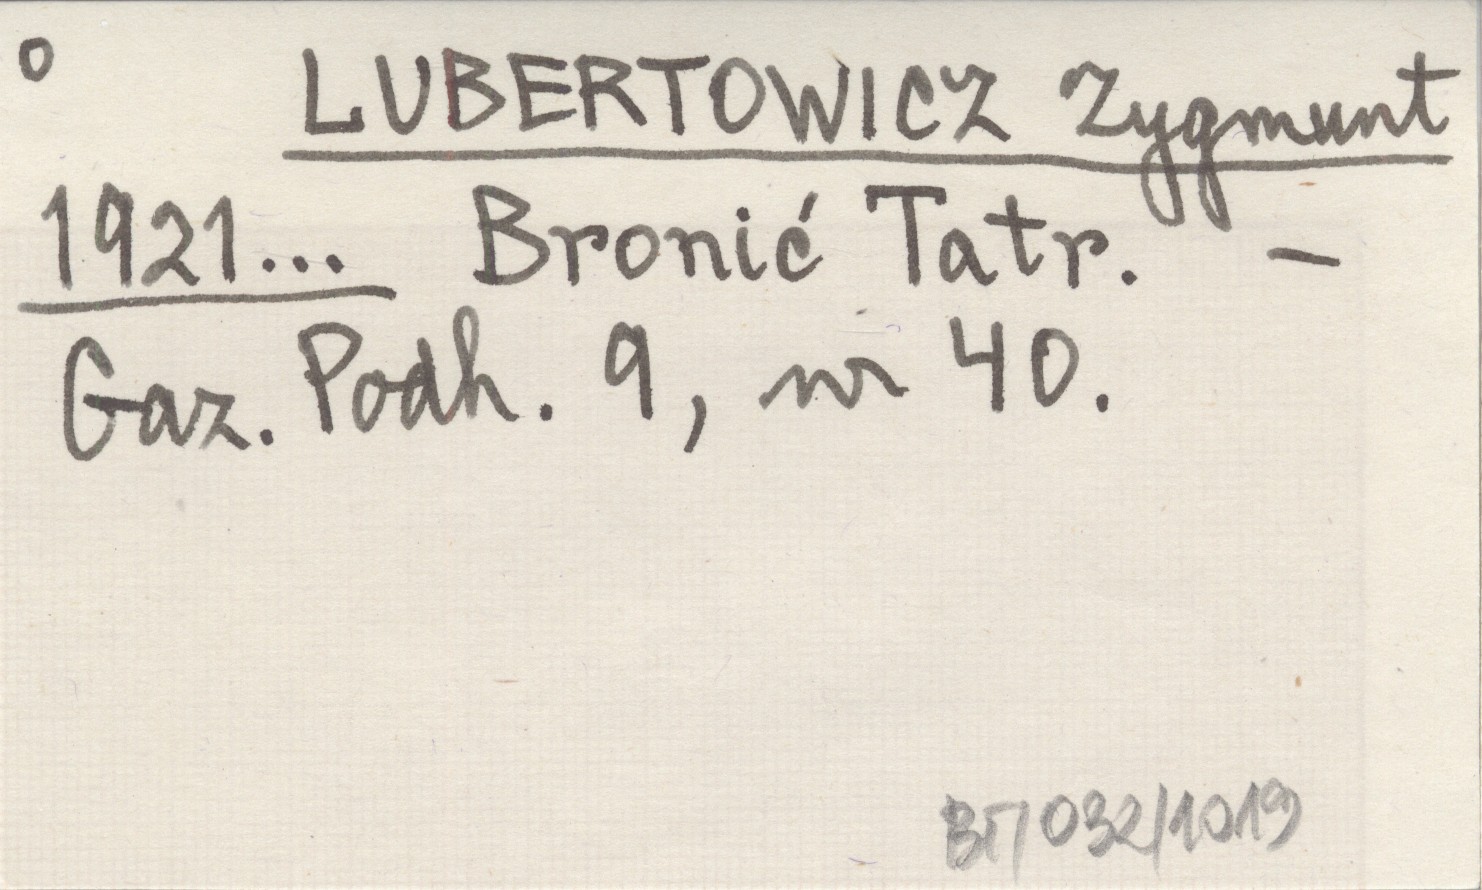 o LUBERTOWICZ Zygmunt
1921... Bronić Tatr. –
Gaz. Podh. 9, nr 40.
BT/032/1019